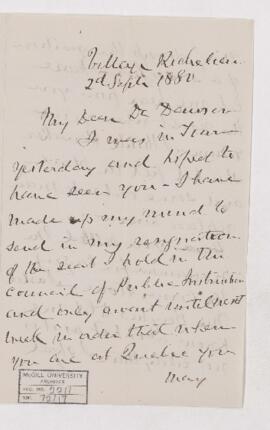 Village Richelieu
2d Septr 1880
My Dear Dr Dawson
I was in Town
yesterday and hoped to
have seen you - I have
made up my mind to
send in my resignation
of the seat I hold in the
Council of Public Instruction
and only await until next
week in order that when
you are at Quebec you
may
McGILL UNIVERSITY
ARCHIVES
ACC. NO. 2211
REF. 72/17